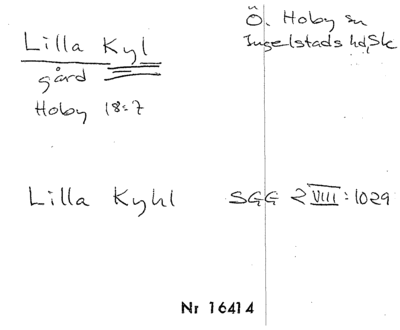 Lilla Kyl
gård
Hoby 18:7
Ö. Hoby sn
Ingelstads hd, Sk
Lilla Kyhl
SGG 2 VIII:1029
Nr 16414